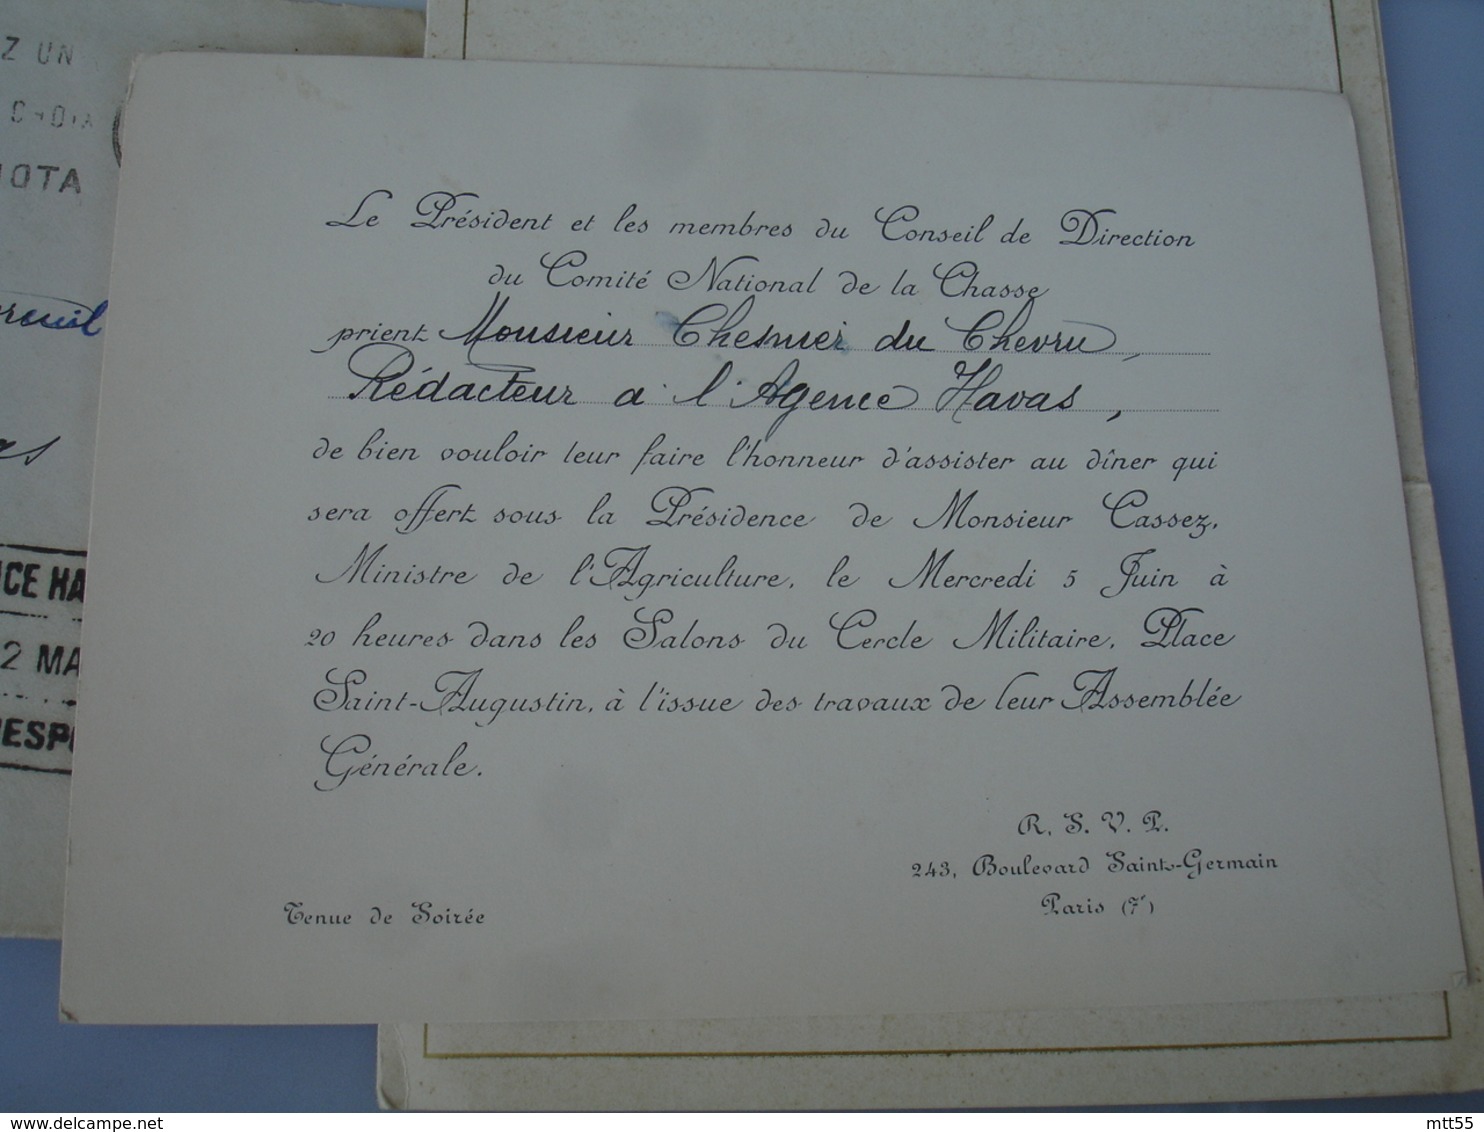 Z UN
NOTA
reuil
NCE HA
2 MA
RESP
Le Président et les membres du Conseil de Direction
du Comité National de la Chasse
prient Monsieur Chesnier du Chevru,
Rédacteur a l'Agence Havas,
de bien vouloir leur faire l'honneur d'assister au dîner qui
sera offert sous la Présidence de Monsieur Cassez,
Ministre de l'Agriculture, le Mercredi 5 Juin à
20 heures dans les Salons du Cercle Militaire, Place
Saint-Augustin, à l'issue des travaux de leur Assemblée
Générale.
R. S. V. P.
243, Boulevard Saint-Germain
Paris (7ᵉ)
Tenue de Soirée
mtt55